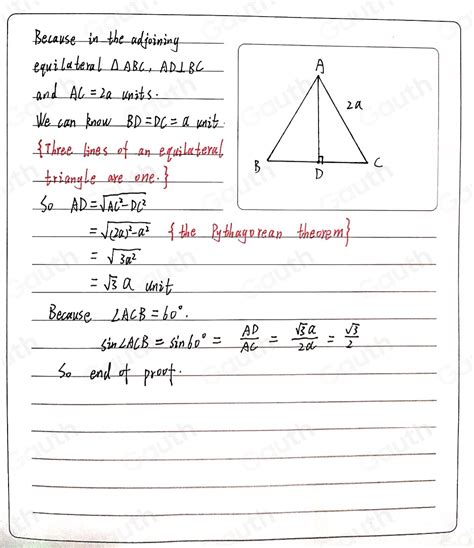 Because in the adjoining
equilateral △ABC, AD⊥BC
and AC = 2a units.
We can know BD=DC=a unit.
{Three lines of an equilateral
triangle are one.}
So AD=√AC²-DC²
=√(2a)²-a² {the Pythagorean theorem}
=√3a²
=√3 a unit
Because ∠ACB=60°.
sin∠ACB = sin60° = AD/AC = √3a/2a = √3/2
So end of proof.
A
2a
B
D
C
Gauth